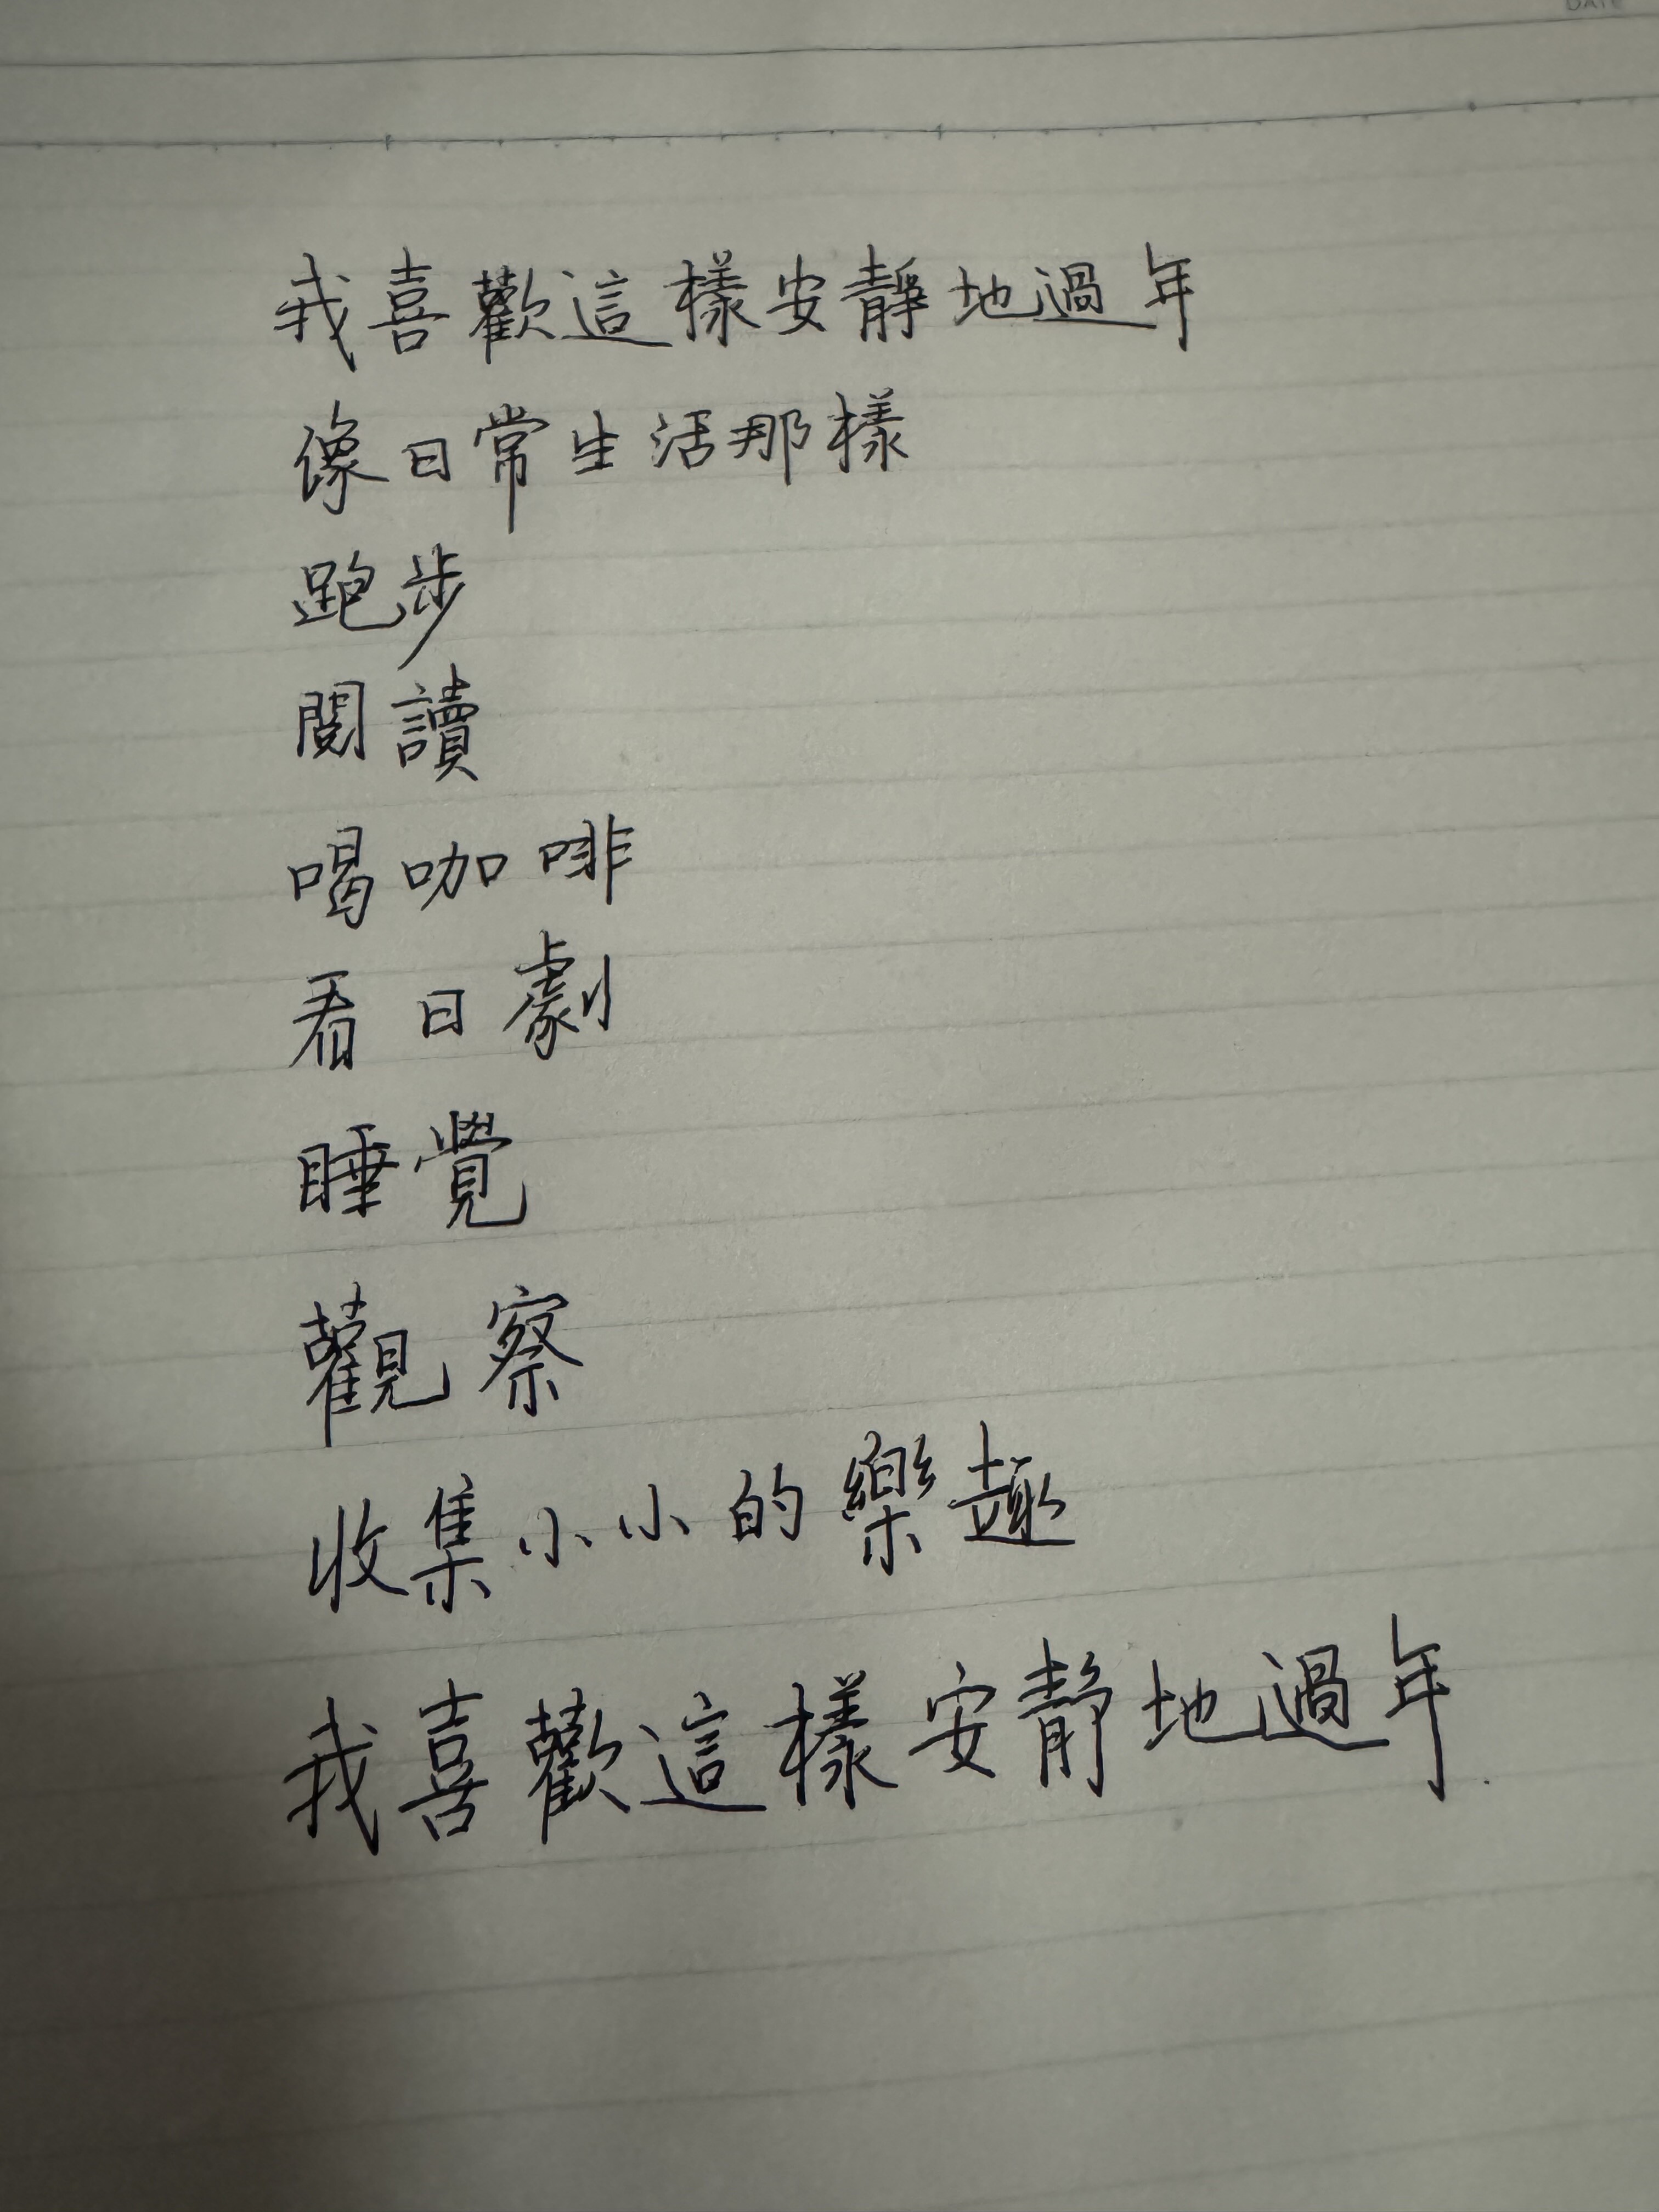 DATE
我喜歡這樣安靜地過年
像日常生活那樣
跑步
閱讀
喝咖啡
看日劇
睡覺
觀察
收集小小的樂趣
我喜歡這樣安靜地過年.